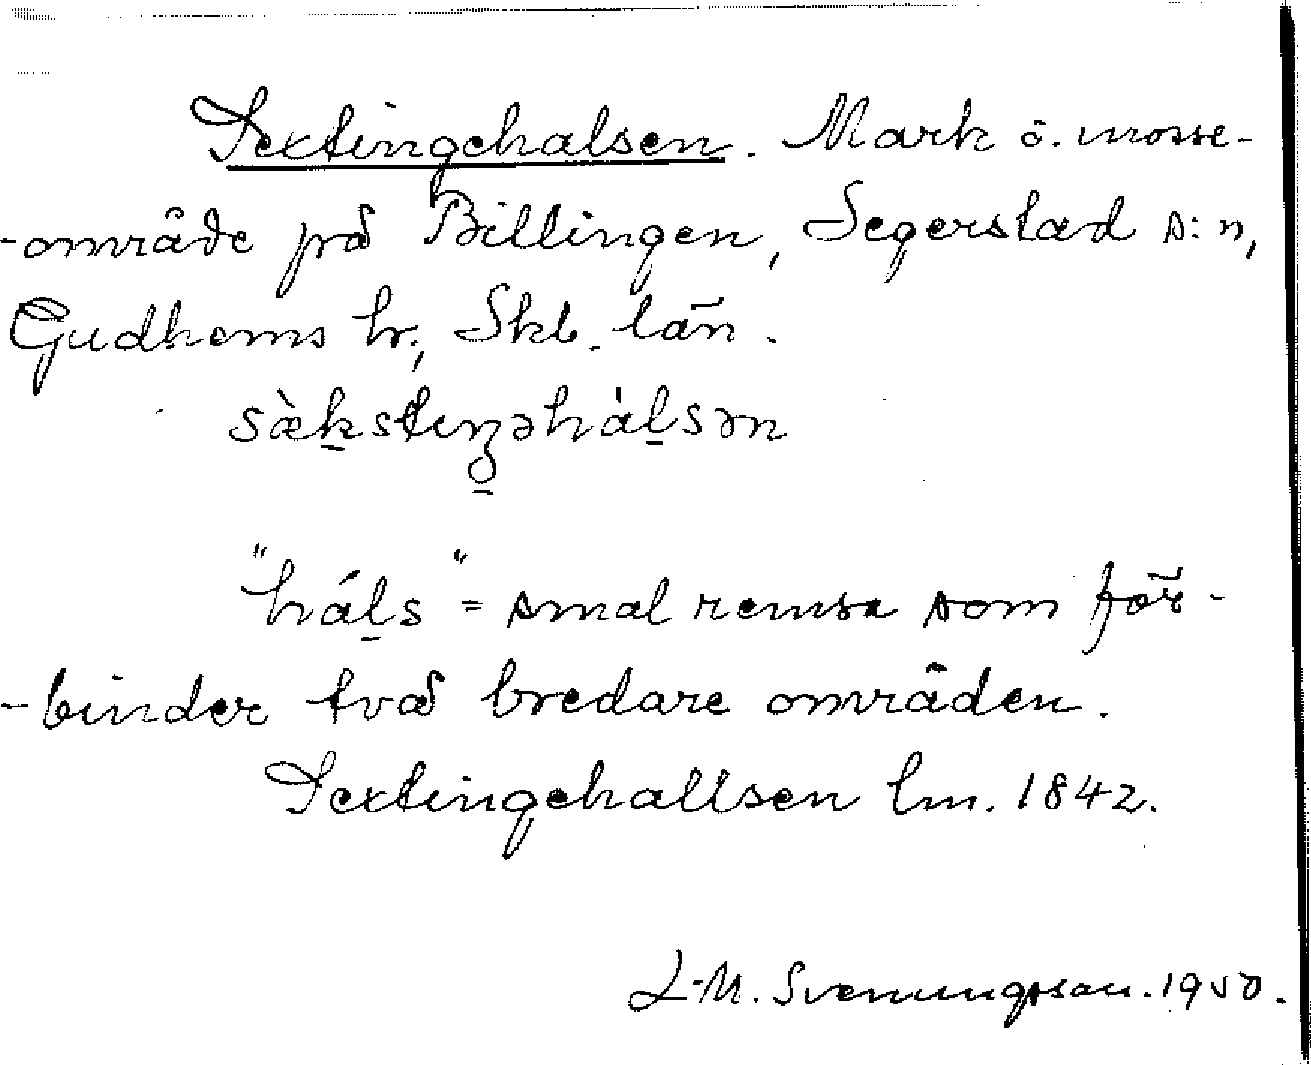 Sextingehalsen. Mark o. mosse-
-område på Billingen, Segerstad s:n,
Gudhems hr., Skb. län.
sæ̀kstiŋəhàl̠sən
"hál̠s" = smal remsa som för-
-binder två bredare områden.
Sextingehallsen lm. 1842.
L-M. Svenungsson. 1950.